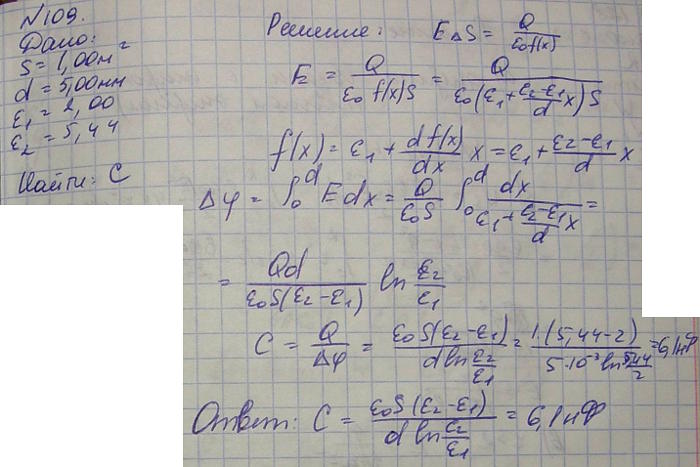 №109.
Дано:
S = 1,00м²
d = 5,00мм
ε₁ = 2,00
ε₂ = 5,44
Найти: C
Решение: EΔS = Q/(ε₀f(x))
E = Q/(ε₀ f(x)S) = Q/(ε₀(ε₁ + (ε₂-ε₁)/d x)S)
f(x) = ε₁ + df(x)/dx x = ε₁ + (ε₂-ε₁)/d x
Δφ = ∫₀ᵈ Edx = Q/(ε₀S) ∫₀ᵈ dx/(ε₁ + (ε₂-ε₁)/d x) =
= Qd/(ε₀S(ε₂-ε₁)) ln ε₂/ε₁
C = Q/Δφ = ε₀S(ε₂-ε₁)/(d ln ε₂/ε₁) = 1·(5,44-2)/(5·10⁻³ ln 5,44/2) = 6,1нФ
Ответ: C = ε₀S(ε₂-ε₁)/(d ln ε₂/ε₁) = 6,1нФ